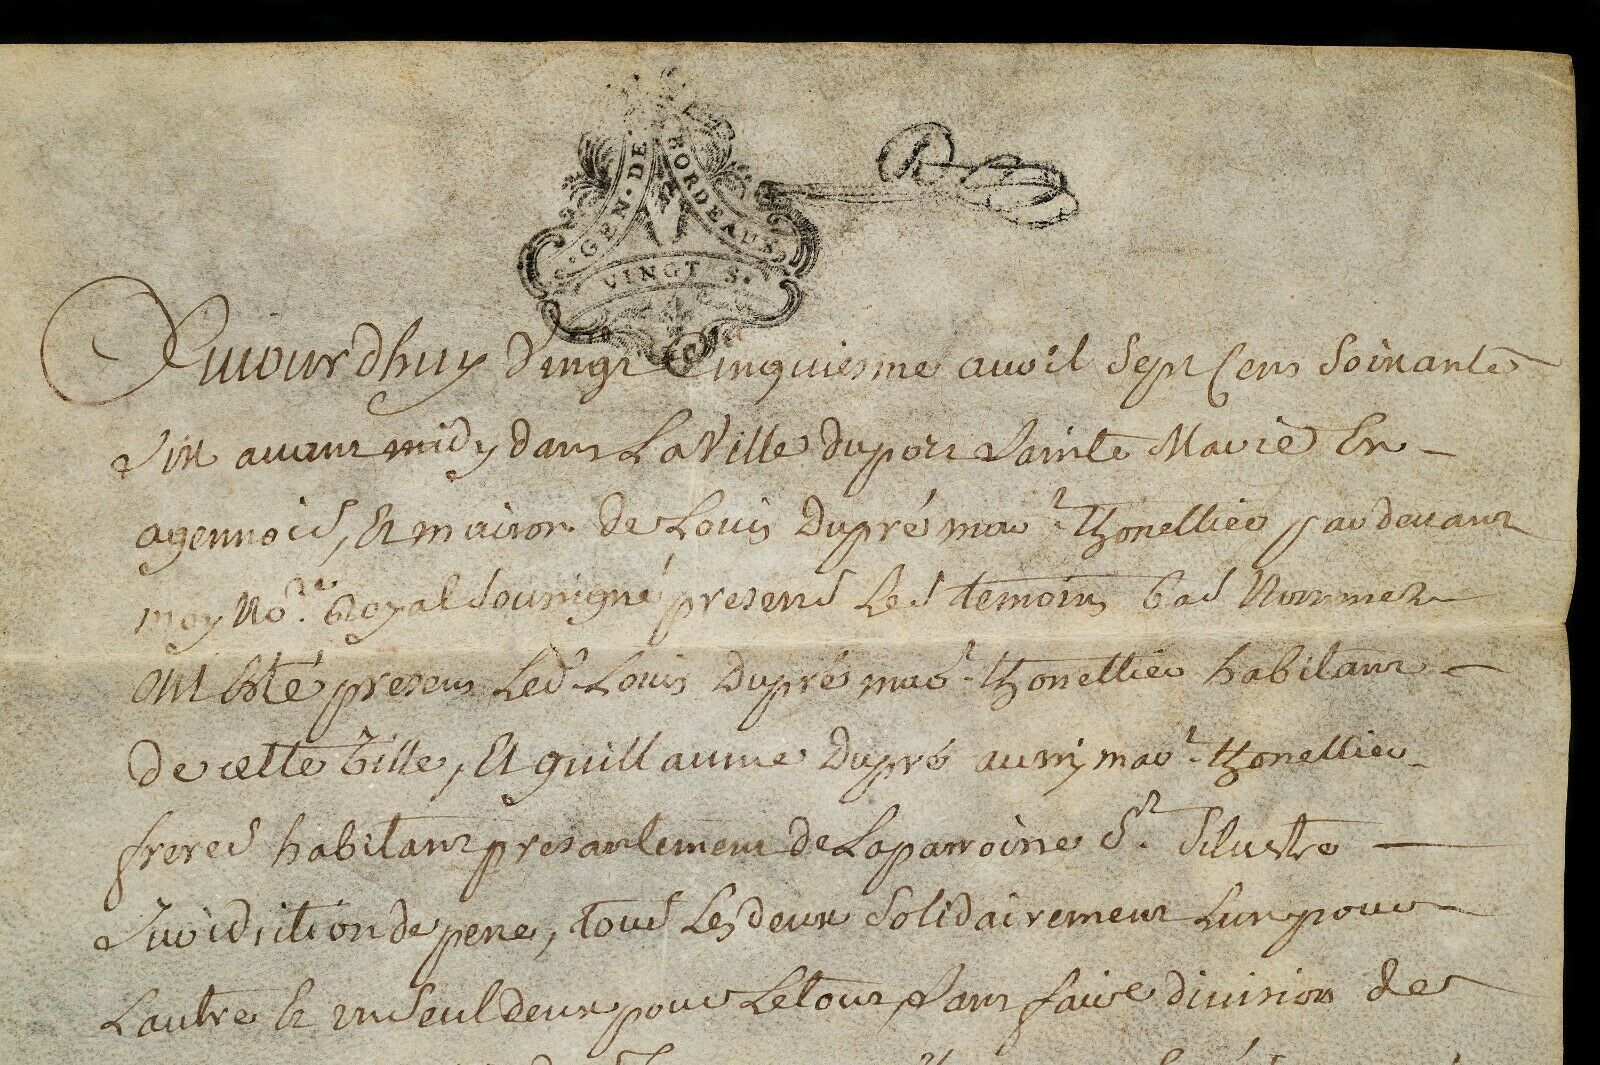 GEN · DE BORDEAUX
VINGT S.
Aujourdhuy vingt Cinquiesme avril Sept Cens Soixante
Six avant midy dans La Ville du port Sainte Marie En
agennois, Et maison de Louis Dupré mar. thonellier par devant
moy No.re Royal Soussigné presens Les temoins bas Nommez
ont Esté presens Led. Louis Dupré mar. thonellier habitant
de cette Ville, Et guillaume Dupré aussy mar. thonellier
freres habitant presantement de La parroisse St. Silvestre
Juridition de pene, tous Les deux Solidairement Lun pour
Lautre Et un Seul deux pour Le tout Sans faire division de